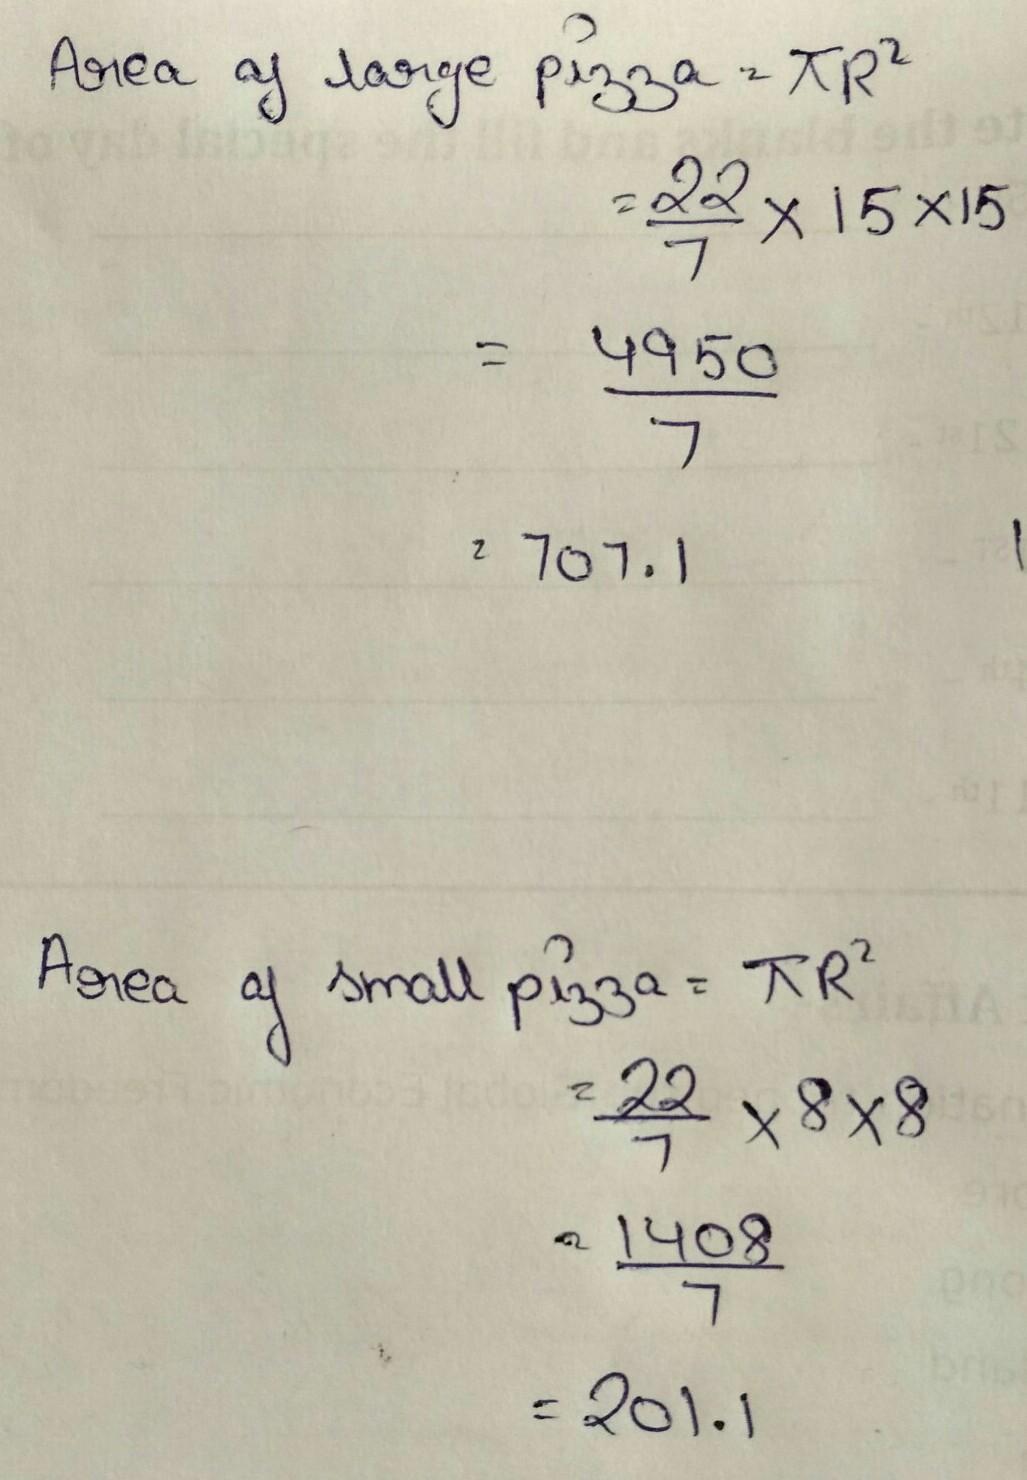 Area of large pizza = πR²
= 22/7 × 15 × 15
= 4950/7
= 707.1
Area of small pizza = πR²
= 22/7 × 8 × 8
= 1408/7
= 201.1